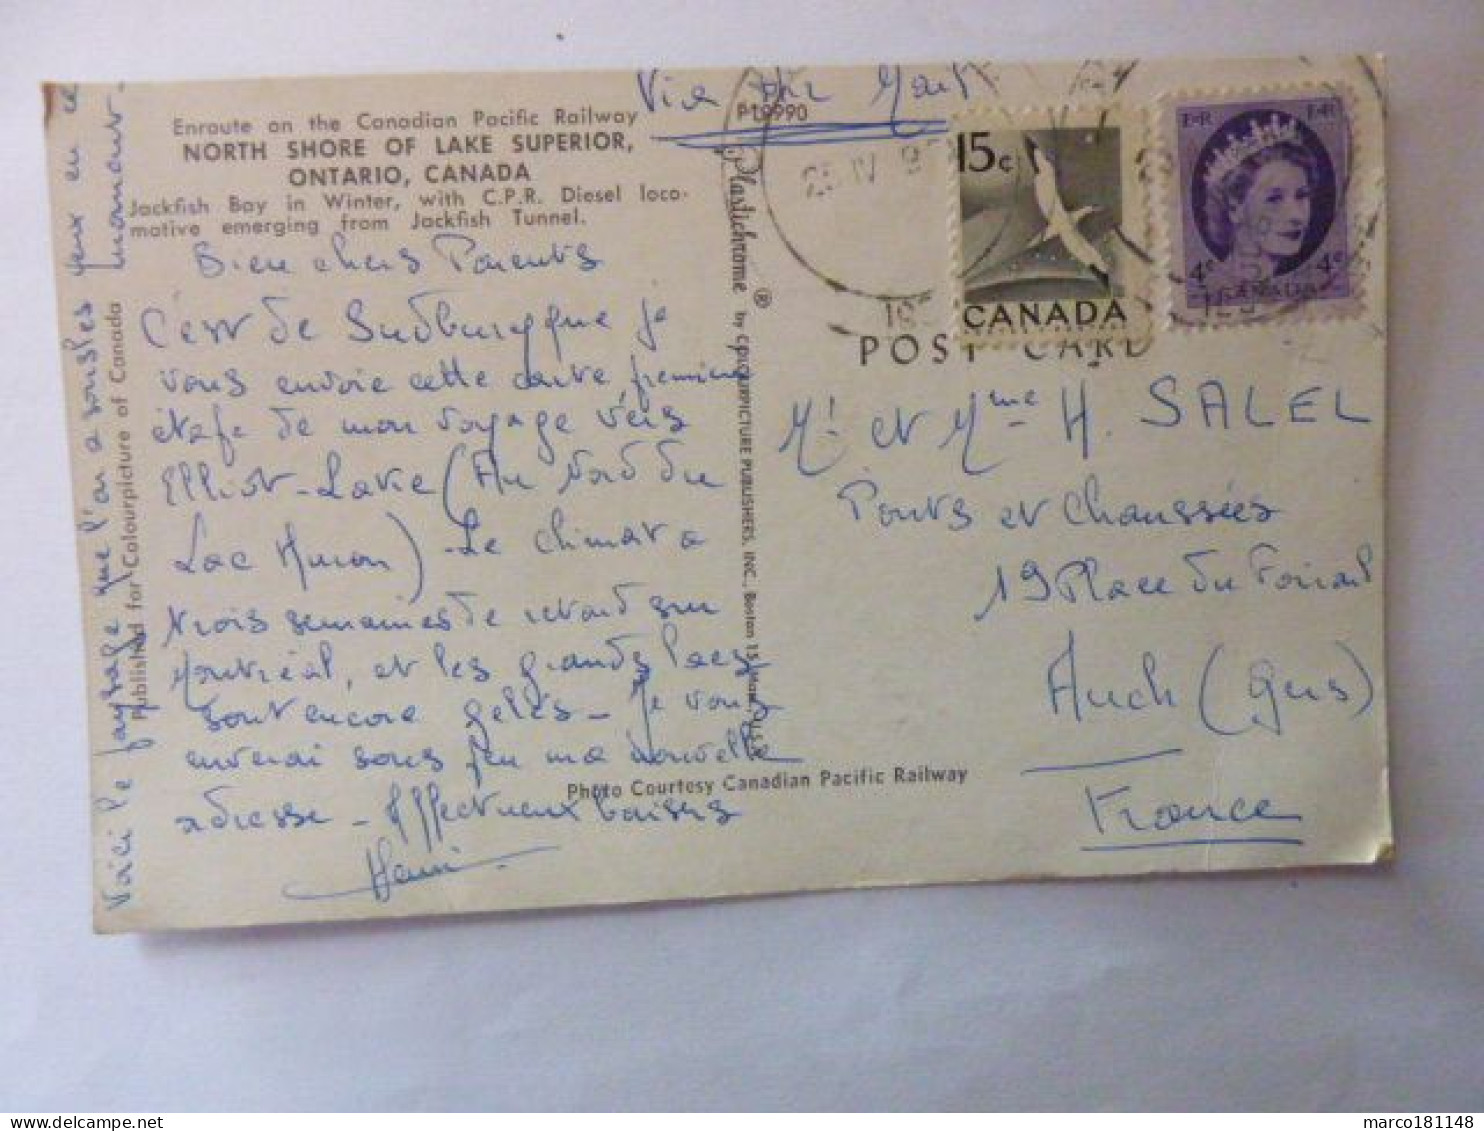 Via Air Mail
P19990
Enroute on the Canadian Pacific Railway
NORTH SHORE OF LAKE SUPERIOR,
ONTARIO, CANADA
Jackfish Bay in Winter, with C.P.R. Diesel loco-
motive emerging from Jackfish Tunnel.
Bien chers Parents
C'est de Sudbury que je
vous envoie cette carte, première
étape de mon voyage vers
Elliot-Lake (Au Nord du
Lac Huron) - Le climat a
trois semaines de retard sur
Montréal, et les grands lacs
sont encore gelés - Je vous
enverai sous peu ma nouvelle
adresse - Affectueux baisers
Henri
Voici le paysage que l'on a sous les yeux en ce
moment.
Published for Colourpicture of Canada
Plastichrome ® by COLOURPICTURE PUBLISHERS, INC., Boston 15, Mass., U.S.A.
15c
CANADA
E II R
4c 4c
CANADA
POST CARD
Mr et Mme H. SALEL
Ponts et Chaussées
19 Place du Foirail
Auch (Gers)
France
Photo Courtesy Canadian Pacific Railway
marco181148